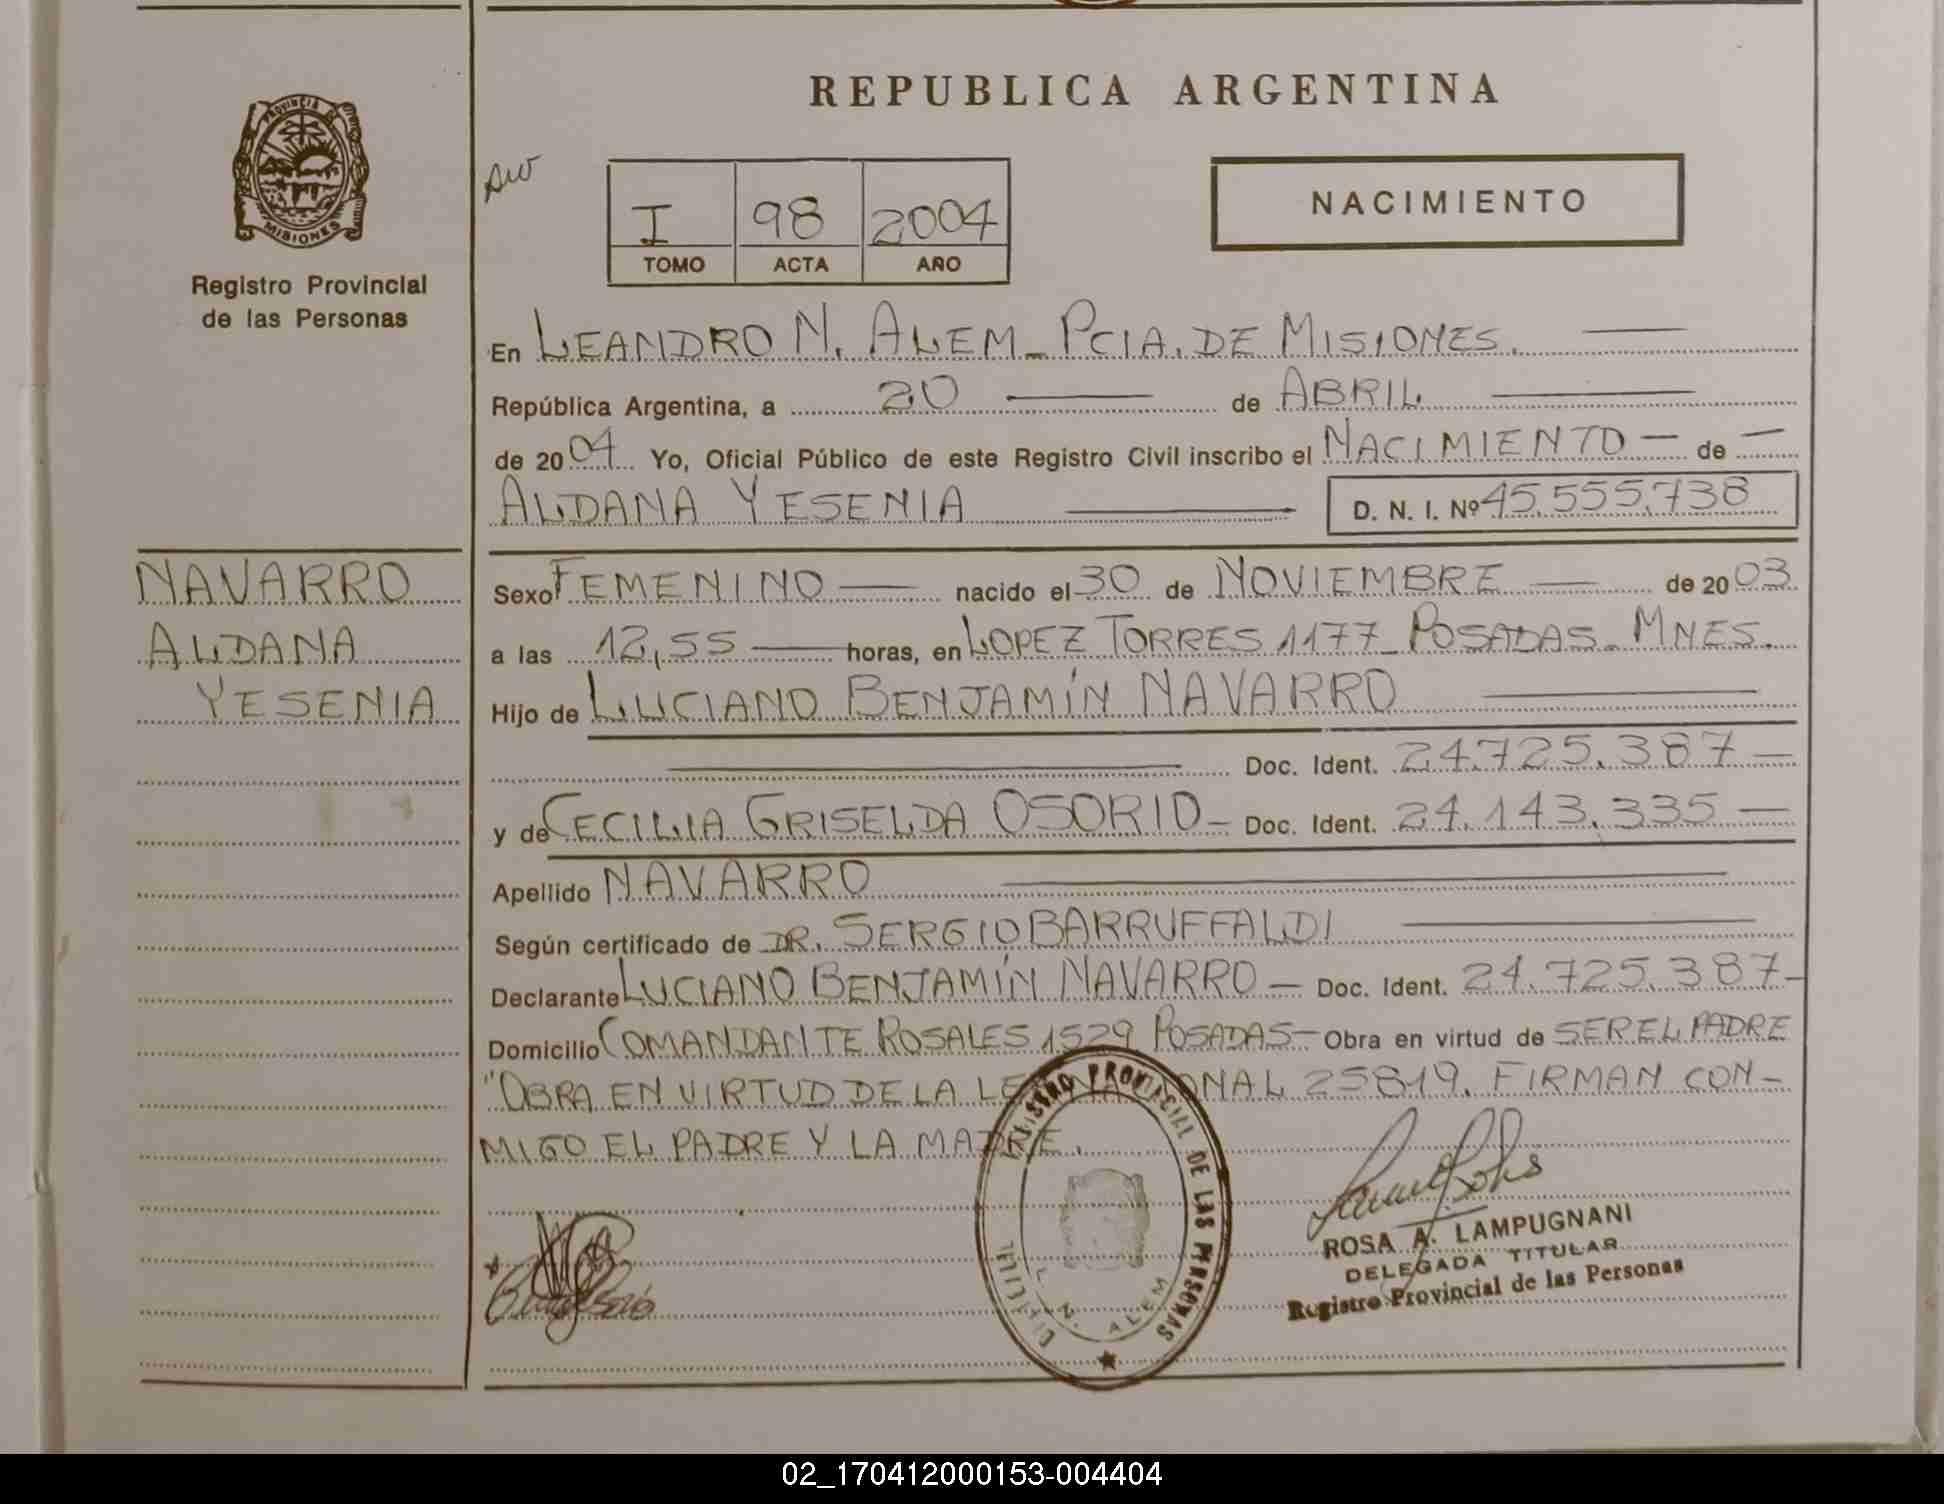 REPUBLICA ARGENTINA
PROVINCIA DE
MISIONES
Registro Provincial
de las Personas
I 98 2004
TOMO ACTA AÑO
NACIMIENTO
En LEANDRO N. ALEM - PCIA. DE MISIONES.
República Argentina, a 20 de ABRIL
de 2004 Yo, Oficial Público de este Registro Civil inscribo el NACIMIENTO de
ALDANA YESENIA D. N. I. Nº 45.555.738
NAVARRO
ALDANA
YESENIA
Sexo FEMENINO nacido el 30 de NOVIEMBRE de 2003
a las 12,55 horas, en LOPEZ TORRES 1177 - POSADAS - MNES.
Hijo de LUCIANO BENJAMÍN NAVARRO
Doc. Ident. 24.725.387
y de CECILIA GRISELDA OSORIO - Doc. Ident. 24.143.335
Apellido NAVARRO
Según certificado de DR. SERGIO BARRUFFALDI
Declarante LUCIANO BENJAMÍN NAVARRO - Doc. Ident. 24.725.387
Domicilio COMANDANTE ROSALES 1529 POSADAS - Obra en virtud de SER EL PADRE
"OBRA EN VIRTUD DE LA LEY NACIONAL 25819. FIRMAN CON-
MIGO EL PADRE Y LA MADRE.
REGISTRO PROVINCIAL DE LAS PERSONAS
L. N. ALEM
ROSA A. LAMPUGNANI
DELEGADA TITULAR
Registro Provincial de las Personas
02_170412000153-004404